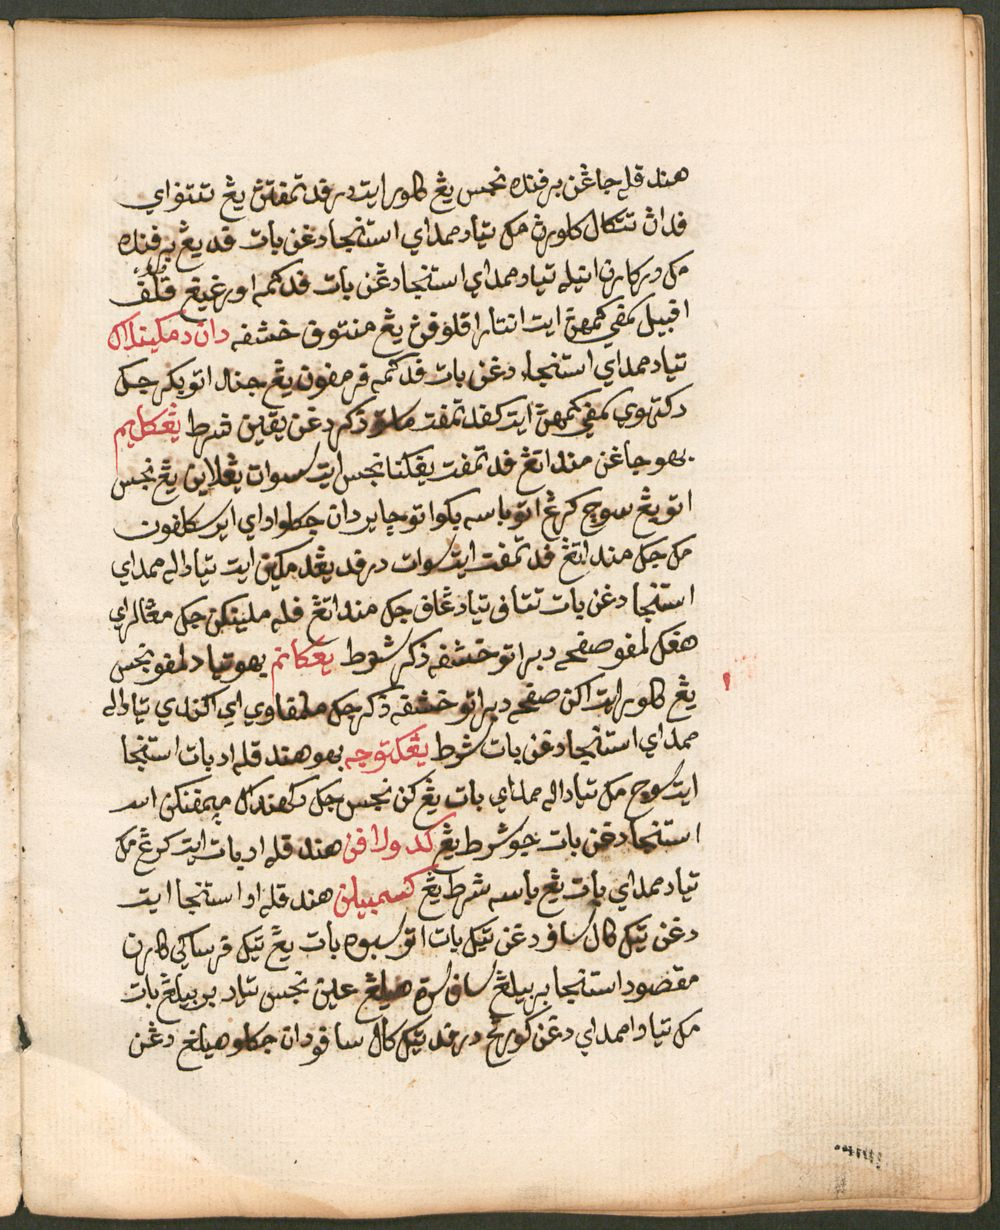 هندقله جاڠن برفنده نجس يڠ كلور ايت درفد تمفتڽ يڠ تتتفاي
فداڽ تتكال كلورڽ مك تياد ممداي استنجا دڠن بات فد يڠ برفنده
مك دركارن اينله تياد ممداي استنجا دڠن بات فد كمه اورڠ يڠ قلف
افبيل سمفي كمهڽ ايت انتارا قلوفڽ يڠ منتوف حشفه دان دمكينلاك
تياد ممداي استنجا دڠن بات فد كمه فرمفون يڠ جندا اتو بكر جك
دكتهوي سمفي كمهڽ ايت كفد تمفت ماسق ذكر دڠن يقين شرط يڠكليم
بهو جاڠن منداتڠ فد تمفت يڠكنا نجس ايت سسوات يڠلاين يڠ نجس
اتو يڠ سوچ كرڠ اتو باسه بكو اتو چاير دان جكلو اداي اير سكلفون
مك جك منداتڠ فد تمفت ايت سسوات درفد يڠدمكين ايت تيادله ممداي
استنجا دڠن بات تتافي تياد مڠاف جك منداتڠ فله ملينكن جك مڠالر اي
هڠك لمفو صفحه دبر اتو حشفه ذكر شرط يڠكانم بهو تياد لمفو نجس
يڠ كلور ايت اكن صفحه دبر اتو حشفه ذكر جك ملمفاوي اي اكندي تيادله
ممداي استنجا دڠن بات شرط يڠكتوجه بهو هندقله اد بات استنجا
ايت سوچ مك تيادله ممداي بات يڠ كن نجس جك دكهندق مڽمفنكن اد
استنجا دڠن بات جو شرط يڠ كدولافن هندقله اد بات ايت كرڠ مك
تياد ممداي بات يڠ باسه شرط يڠ كسمبيلن هندقله اد استنجا ايت
دڠن تيڬ كال سافو دڠن تيڬ بات اتو سبوه بات يڠ تيڬ فرساڬي كارن
مقصود استنجا بربيلڠ سافو سرت هيلڠ عين نجس تياد بربيلڠ بات
مك تياد ممداي دڠن كورڠ درفد تيڬ كال سافو دان جكلو هيلڠ دڠن